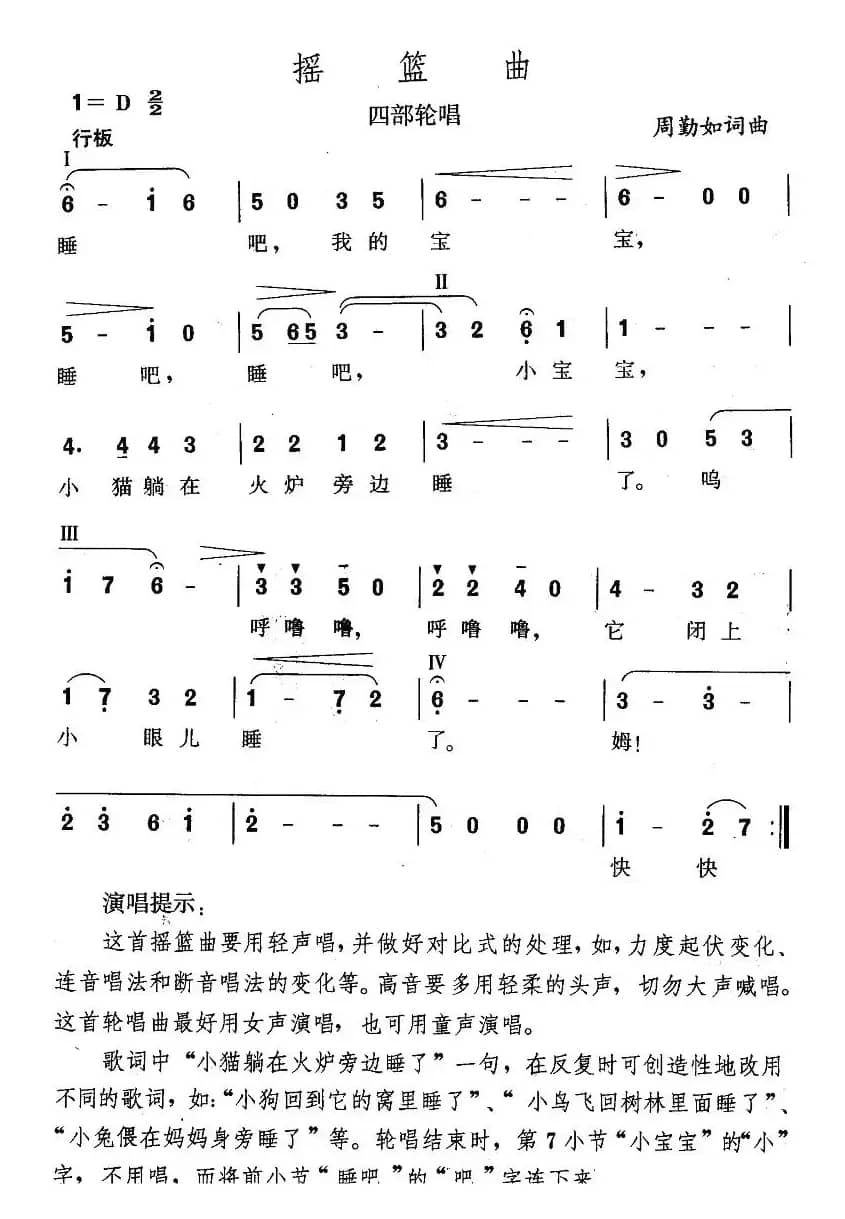 摇 篮 曲
1=D 2/2
四部轮唱
周勤如词曲
行板
I
6 - i 6 | 5 0 3 5 | 6 - - - | 6 - 0 0 |
睡 吧, 我的宝 宝,
II
5 - i 0 | 5 65 3 - | 3 2 6̣ 1 | 1 - - - |
睡 吧, 睡 吧, 小宝 宝,
4. 4 4 3 | 2 2 1 2 | 3 - - - | 3 0 5 3
小 猫躺在 火炉旁边 睡 了。呜
III
i 7 6 - | 3 3 5 0 | 2 2 4 0 | 4 - 3 2 |
呼噜噜, 呼噜噜, 它 闭上
IV
1 7̣ 3 2 | 1 - 7̣ 2 | 6̣ - - - | 3 - 3̇ - |
小 眼儿 睡 了。 姆!
2̇ 3̇ 6 i | 2̇ - - - | 5 0 0 0 | i - 2̇ 7 :‖
快 快
演唱提示:
这首摇篮曲要用轻声唱,并做好对比式的处理,如,力度起伏变化、
连音唱法和断音唱法的变化等。高音要多用轻柔的头声,切勿大声喊唱。
这首轮唱曲最好用女声演唱,也可用童声演唱。
歌词中“小猫躺在火炉旁边睡了”一句,在反复时可创造性地改用
不同的歌词,如:“小狗回到它的窝里睡了”、“小鸟飞回树林里面睡了”、
“小兔偎在妈妈身旁睡了”等。轮唱结束时,第7小节“小宝宝”的“小”
字,不用唱,而将前小节“睡吧”的“吧”字连下来